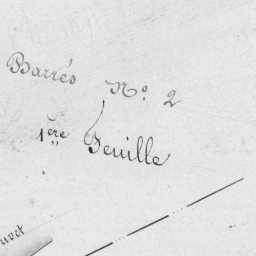 Barrés N.º 2
1ère Feuille